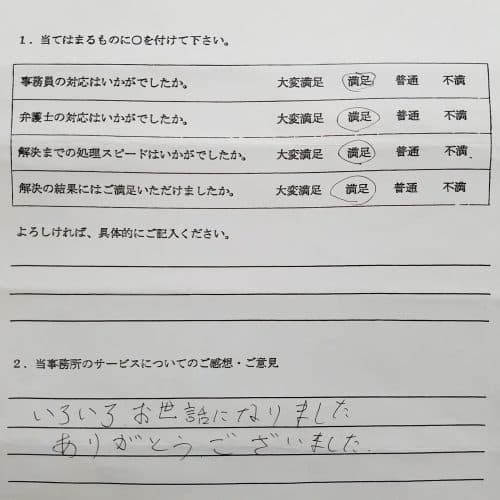 １．当てはまるものに〇を付けて下さい。
事務員の対応はいかがでしたか。 大変満足 満足 普通 不満
弁護士の対応はいかがでしたか。 大変満足 満足 普通 不満
解決までの処理スピードはいかがでしたか。 大変満足 満足 普通 不満
解決の結果にはご満足いただけましたか。 大変満足 満足 普通 不満
よろしければ、具体的にご記入ください。
２．当事務所のサービスについてのご感想・ご意見
いろいろお世話になりました
ありがとうございました.